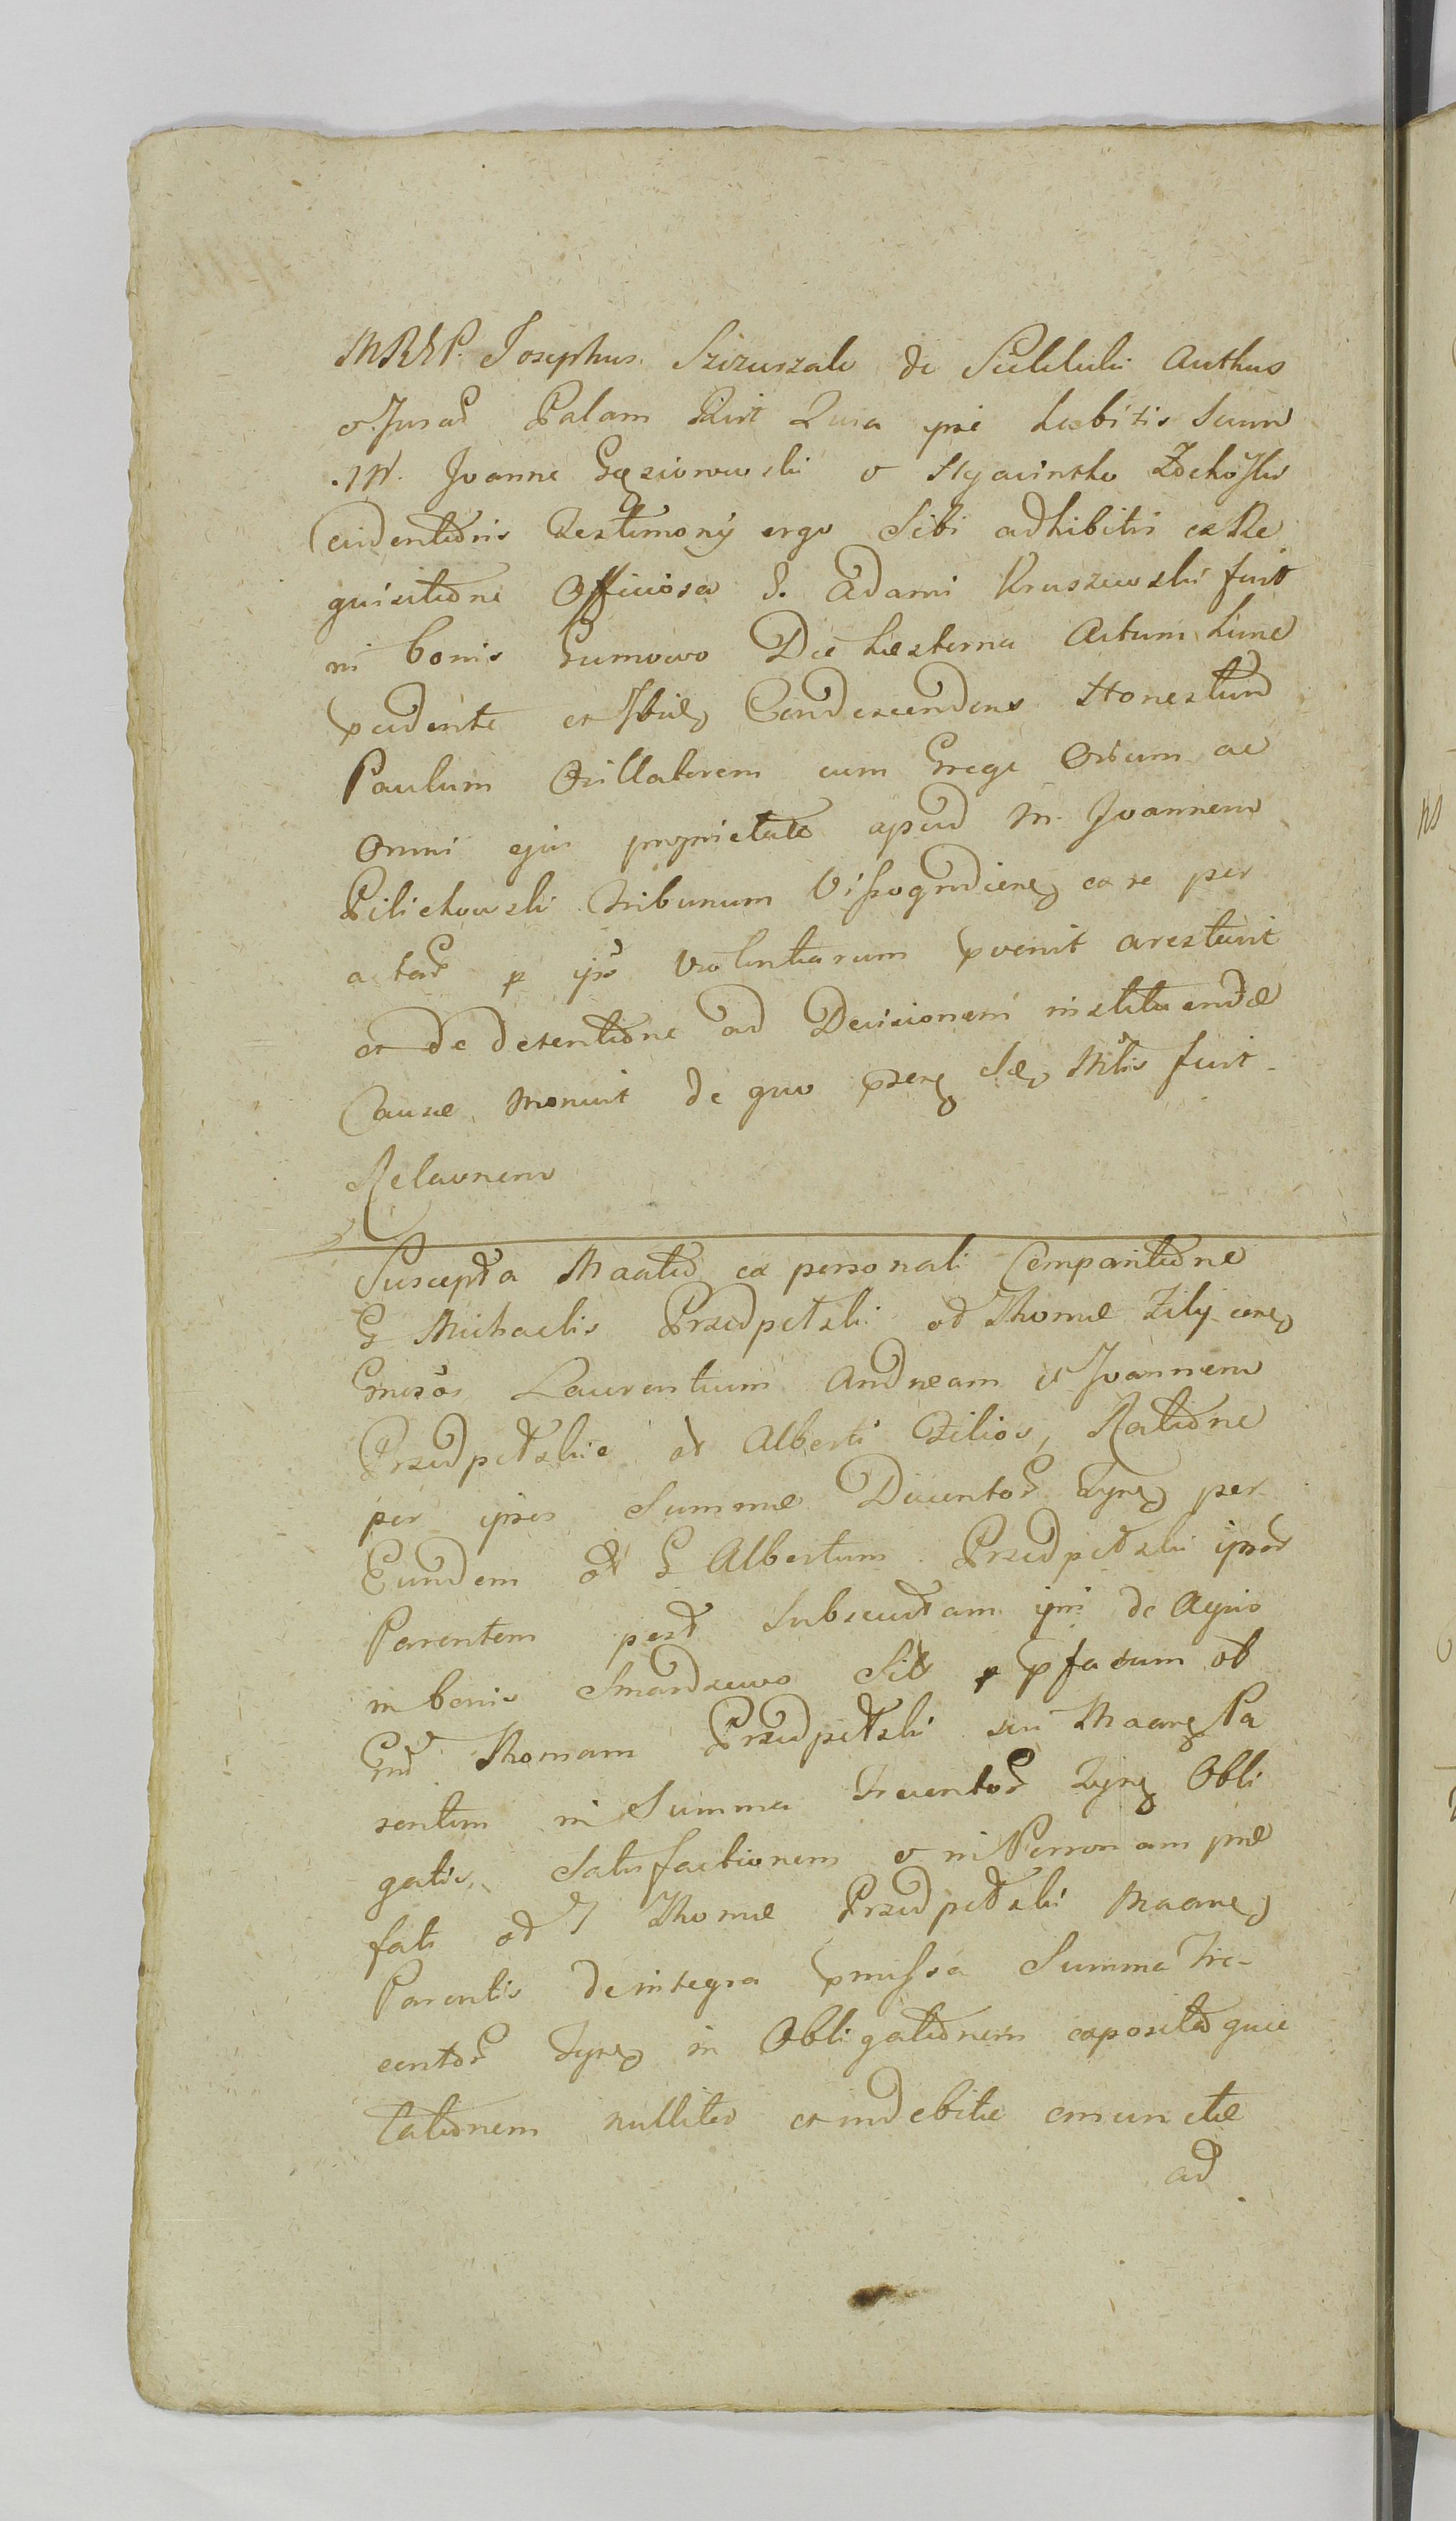 MRGP. Josephus Szczurzalo de Siekluki Authus
et Jurat Palam Rduit Quia ipse habitis secum
M. Joanne Gąsiorowski et Hyacintho Zdchoski
evidentionis Testimony ergo Sibi adhibitis ex Re
quisitione Officiosa G. Adami Kruszewski fuit
in bonis Gumowo Die hesterna Actum hunc
pcedente et Ibid Condescendens Honestum
Paulum Ovillatorem cum Grege Ovium ac
Omni ejus proprietate apud M. Joannem
Pilichowski Tribunum Vissogrodien ex re per
actar p ips violentiarum pvenit arestavit
et de detentione ad Decisionem instituendæ
Causæ monuit de quo psen Sæ Mtis fecit
Relaonem
Suscepta Maatio ex personali Comparitione
G Michaelis Przedpełski od Thomæ Filij cone
Gnosos Laurentium Andream et Joannem
Przedpełskie od Alberti Filios, Ratione
per ipsos Summæ Ducentor Tynf per
Eundem od G Albertum Przedpełski ipsor
Parentem post subsecutam ipsi de Agris
in bonis Smardzewo Sitis p pfatum od
Gnd Thomam Przedpełski sui Maane Pa
rentem in Summa Trecentor Tynf Obli
gatis, Satisfactionem et in Personam præ
fati od G Thomæ Przedpełski Maane
Parentis de integra pmissa Summa Tre-
centor Tynf in Obligationem exposita quie
tationem nulliter et indebite emunctæ
ad